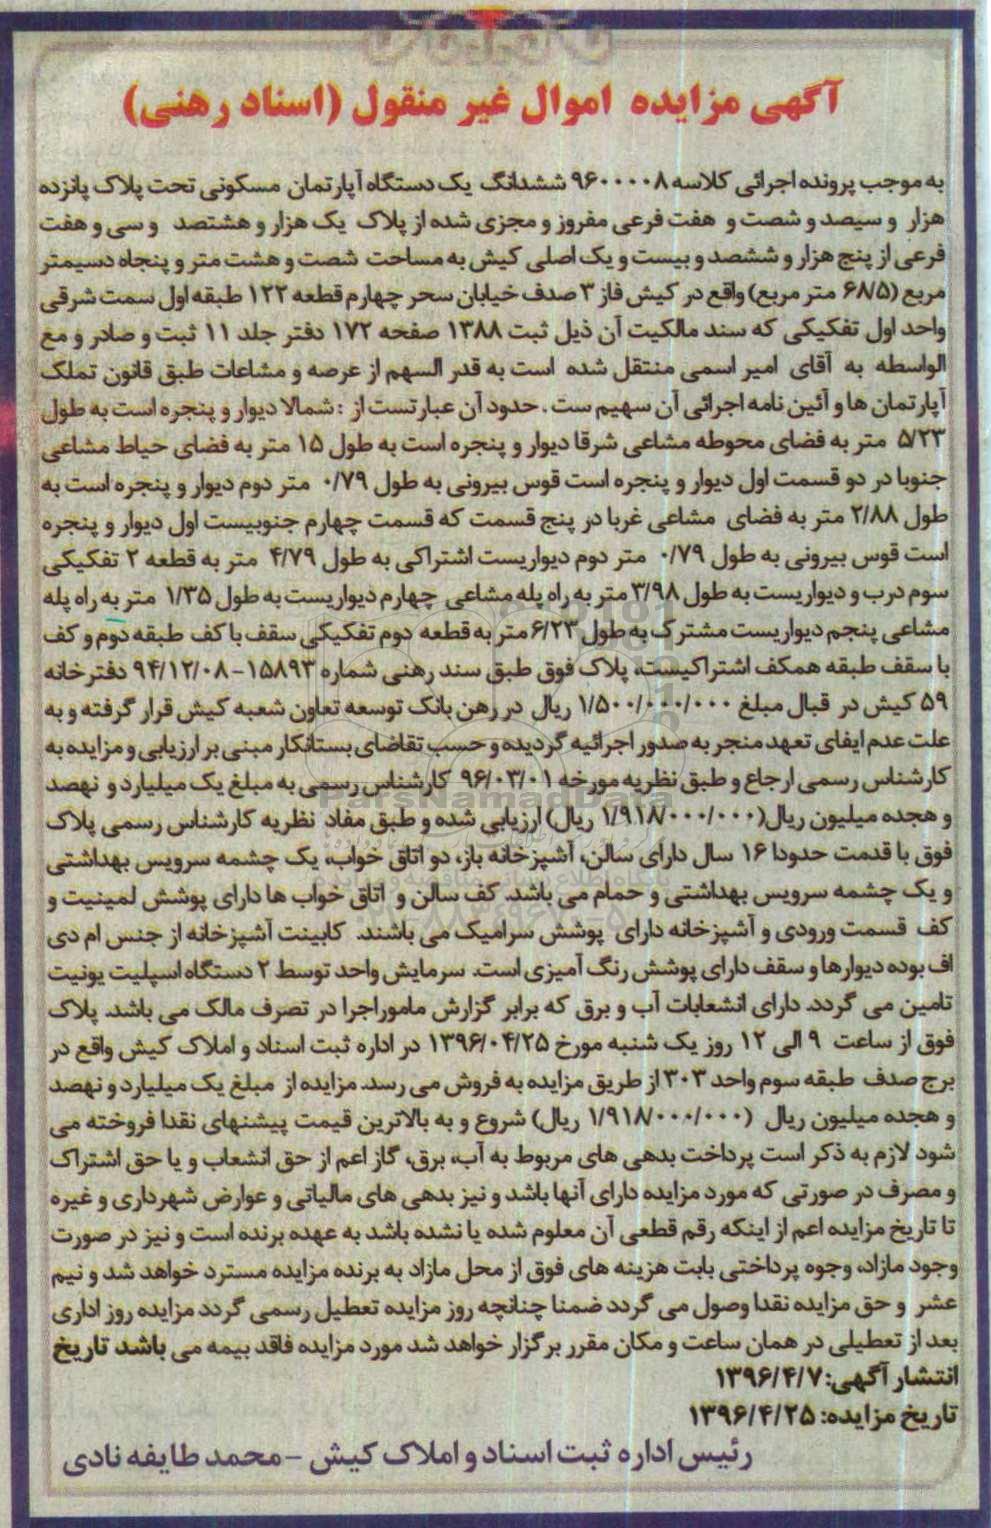 آگهی مزایده اموال غیر منقول (اسناد رهنی)
به موجب پرونده اجرائی کلاسه ۹۶۰۰۰۰۸ ششدانگ یک دستگاه آپارتمان مسکونی تحت پلاک پانزده
هزار و سیصد و شصت و هفت فرعی مفروز و مجزی شده از پلاک یک هزار و هشتصد و سی و هفت
فرعی از پنج هزار و ششصد و بیست و یک اصلی کیش به مساحت شصت و هشت متر و پنجاه دسیمتر
مربع (۶۸/۵ متر مربع) واقع در کیش فاز ۳ صدف خیابان سحر چهارم قطعه ۱۲۲ طبقه اول سمت شرقی
واحد اول تفکیکی که سند مالکیت آن ذیل ثبت ۱۳۸۸ صفحه ۱۷۲ دفتر جلد ۱۱ ثبت و صادر و مع
الواسطه به آقای امیر اسمی منتقل شده است به قدر السهم از عرصه و مشاعات طبق قانون تملک
آپارتمان ها و آئین نامه اجرائی آن سهیم ست. حدود آن عبارتست از : شمالا دیوار و پنجره است به طول
۵/۲۳ متر به فضای محوطه مشاعی شرقا دیوار و پنجره است به طول ۱۵ متر به فضای حیاط مشاعی
جنوبا در دو قسمت اول دیوار و پنجره است قوس بیرونی به طول ۰/۷۹ متر دوم دیوار و پنجره است به
طول ۲/۸۸ متر به فضای مشاعی غربا در پنج قسمت که قسمت چهارم جنوبیست اول دیوار و پنجره
است قوس بیرونی به طول ۰/۷۹ متر دوم دیواریست اشتراکی به طول ۴/۷۹ متر به قطعه ۲ تفکیکی
سوم درب و دیواریست به طول ۳/۹۸ متر به راه پله مشاعی چهارم دیواریست به طول ۱/۳۵ متر به راه پله
مشاعی پنجم دیواریست مشترک به طول ۶/۲۳ متر به قطعه دوم تفکیکی سقف با کف طبقه دوم و کف
با سقف طبقه همکف اشتراکیست، پلاک فوق طبق سند رهنی شماره ۱۵۸۹۳-۹۴/۱۲/۰۸ دفترخانه
۵۹ کیش در قبال مبلغ ۱/۵۰۰/۰۰۰/۰۰۰ ریال در رهن بانک توسعه تعاون شعبه کیش قرار گرفته و به
علت عدم ایفای تعهد منجر به صدور اجرائیه گردیده و حسب تقاضای بستانکار مبنی بر ارزیابی و مزایده به
کارشناس رسمی ارجاع و طبق نظریه مورخه ۹۶/۰۳/۰۱ کارشناس رسمی به مبلغ یک میلیارد و نهصد
و هجده میلیون ریال(۱/۹۱۸/۰۰۰/۰۰۰ ریال) ارزیابی شده و طبق مفاد نظریه کارشناس رسمی پلاک
فوق با قدمت حدودا ۱۶ سال دارای سالن، آشپزخانه باز، دو اتاق خواب، یک چشمه سرویس بهداشتی
و یک چشمه سرویس بهداشتی و حمام می باشد. کف سالن و اتاق خواب ها دارای پوشش لمینیت و
کف قسمت ورودی و آشپزخانه دارای پوشش سرامیک می باشند. کابینت آشپزخانه از جنس ام دی
اف بوده دیوارها و سقف دارای پوشش رنگ آمیزی است. سرمایش واحد توسط ۲ دستگاه اسپلیت یونیت
تامین می گردد. دارای انشعابات آب و برق که برابر گزارش ماموراجرا در تصرف مالک می باشد. پلاک
فوق از ساعت ۹ الی ۱۲ روز یک شنبه مورخ ۱۳۹۶/۰۴/۲۵ در اداره ثبت اسناد و املاک کیش واقع در
برج صدف طبقه سوم واحد ۳۰۳ از طریق مزایده به فروش می رسد. مزایده از مبلغ یک میلیارد و نهصد
و هجده میلیون ریال (۱/۹۱۸/۰۰۰/۰۰۰ ریال) شروع و به بالاترین قیمت پیشنهای نقدا فروخته می
شود لازم به ذکر است پرداخت بدهی های مربوط به آب، برق، گاز اعم از حق انشعاب و یا حق اشتراک
و مصرف در صورتی که مورد مزایده دارای آنها باشد و نیز بدهی های مالیاتی و عوارض شهرداری و غیره
تا تاریخ مزایده اعم از اینکه رقم قطعی آن معلوم شده یا نشده باشد به عهده برنده است و نیز در صورت
وجود مازاد، وجوه پرداختی بابت هزینه های فوق از محل مازاد به برنده مزایده مسترد خواهد شد و نیم
عشر و حق مزایده نقدا وصول می گردد ضمنا چنانچه روز مزایده تعطیل رسمی گردد مزایده روز اداری
بعد از تعطیلی در همان ساعت و مکان مقرر برگزار خواهد شد مورد مزایده فاقد بیمه می باشد تاریخ
انتشار آگهی: ۱۳۹۶/۴/۷
تاریخ مزایده: ۱۳۹۶/۴/۲۵
رئیس اداره ثبت اسناد و املاک کیش – محمد طایفه نادی
ParsNamadData